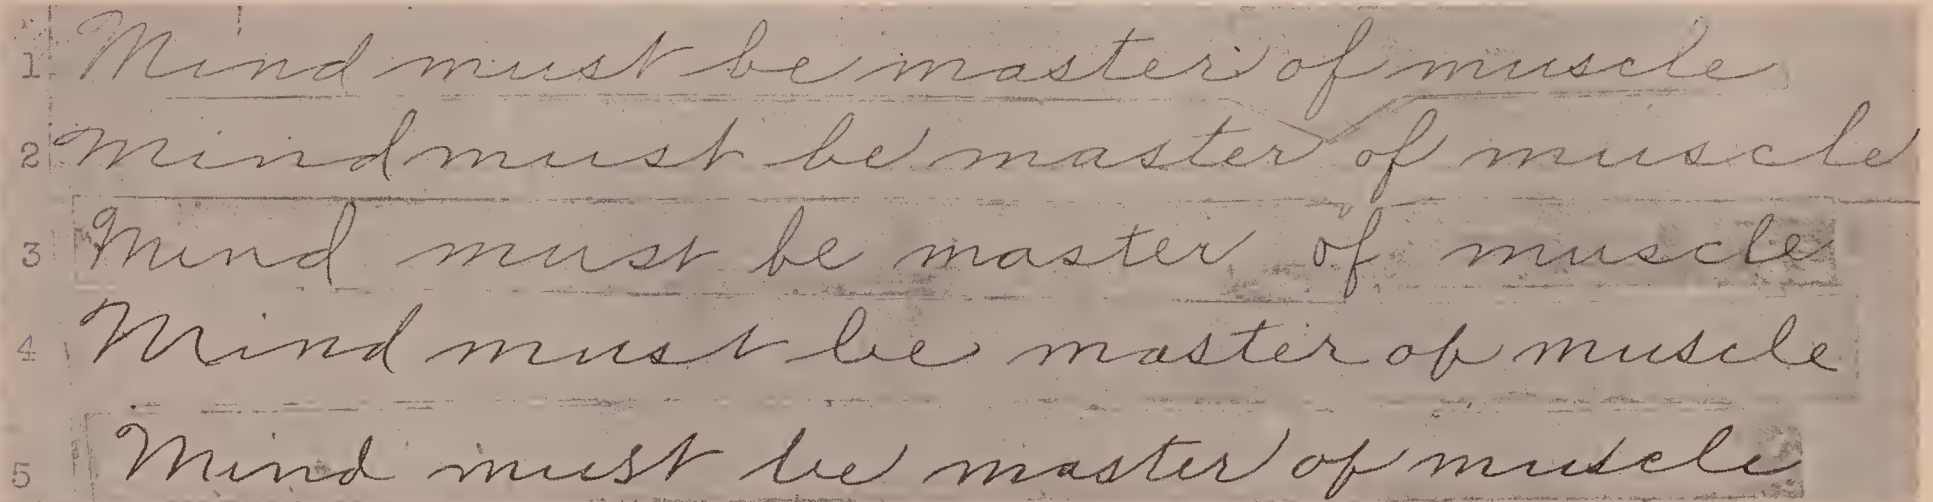 1 Mind must be master of muscle
2 Mind must be master of muscle
3 Mind must be master of muscle
4 Mind must be master of muscle
5 Mind must be master of muscle